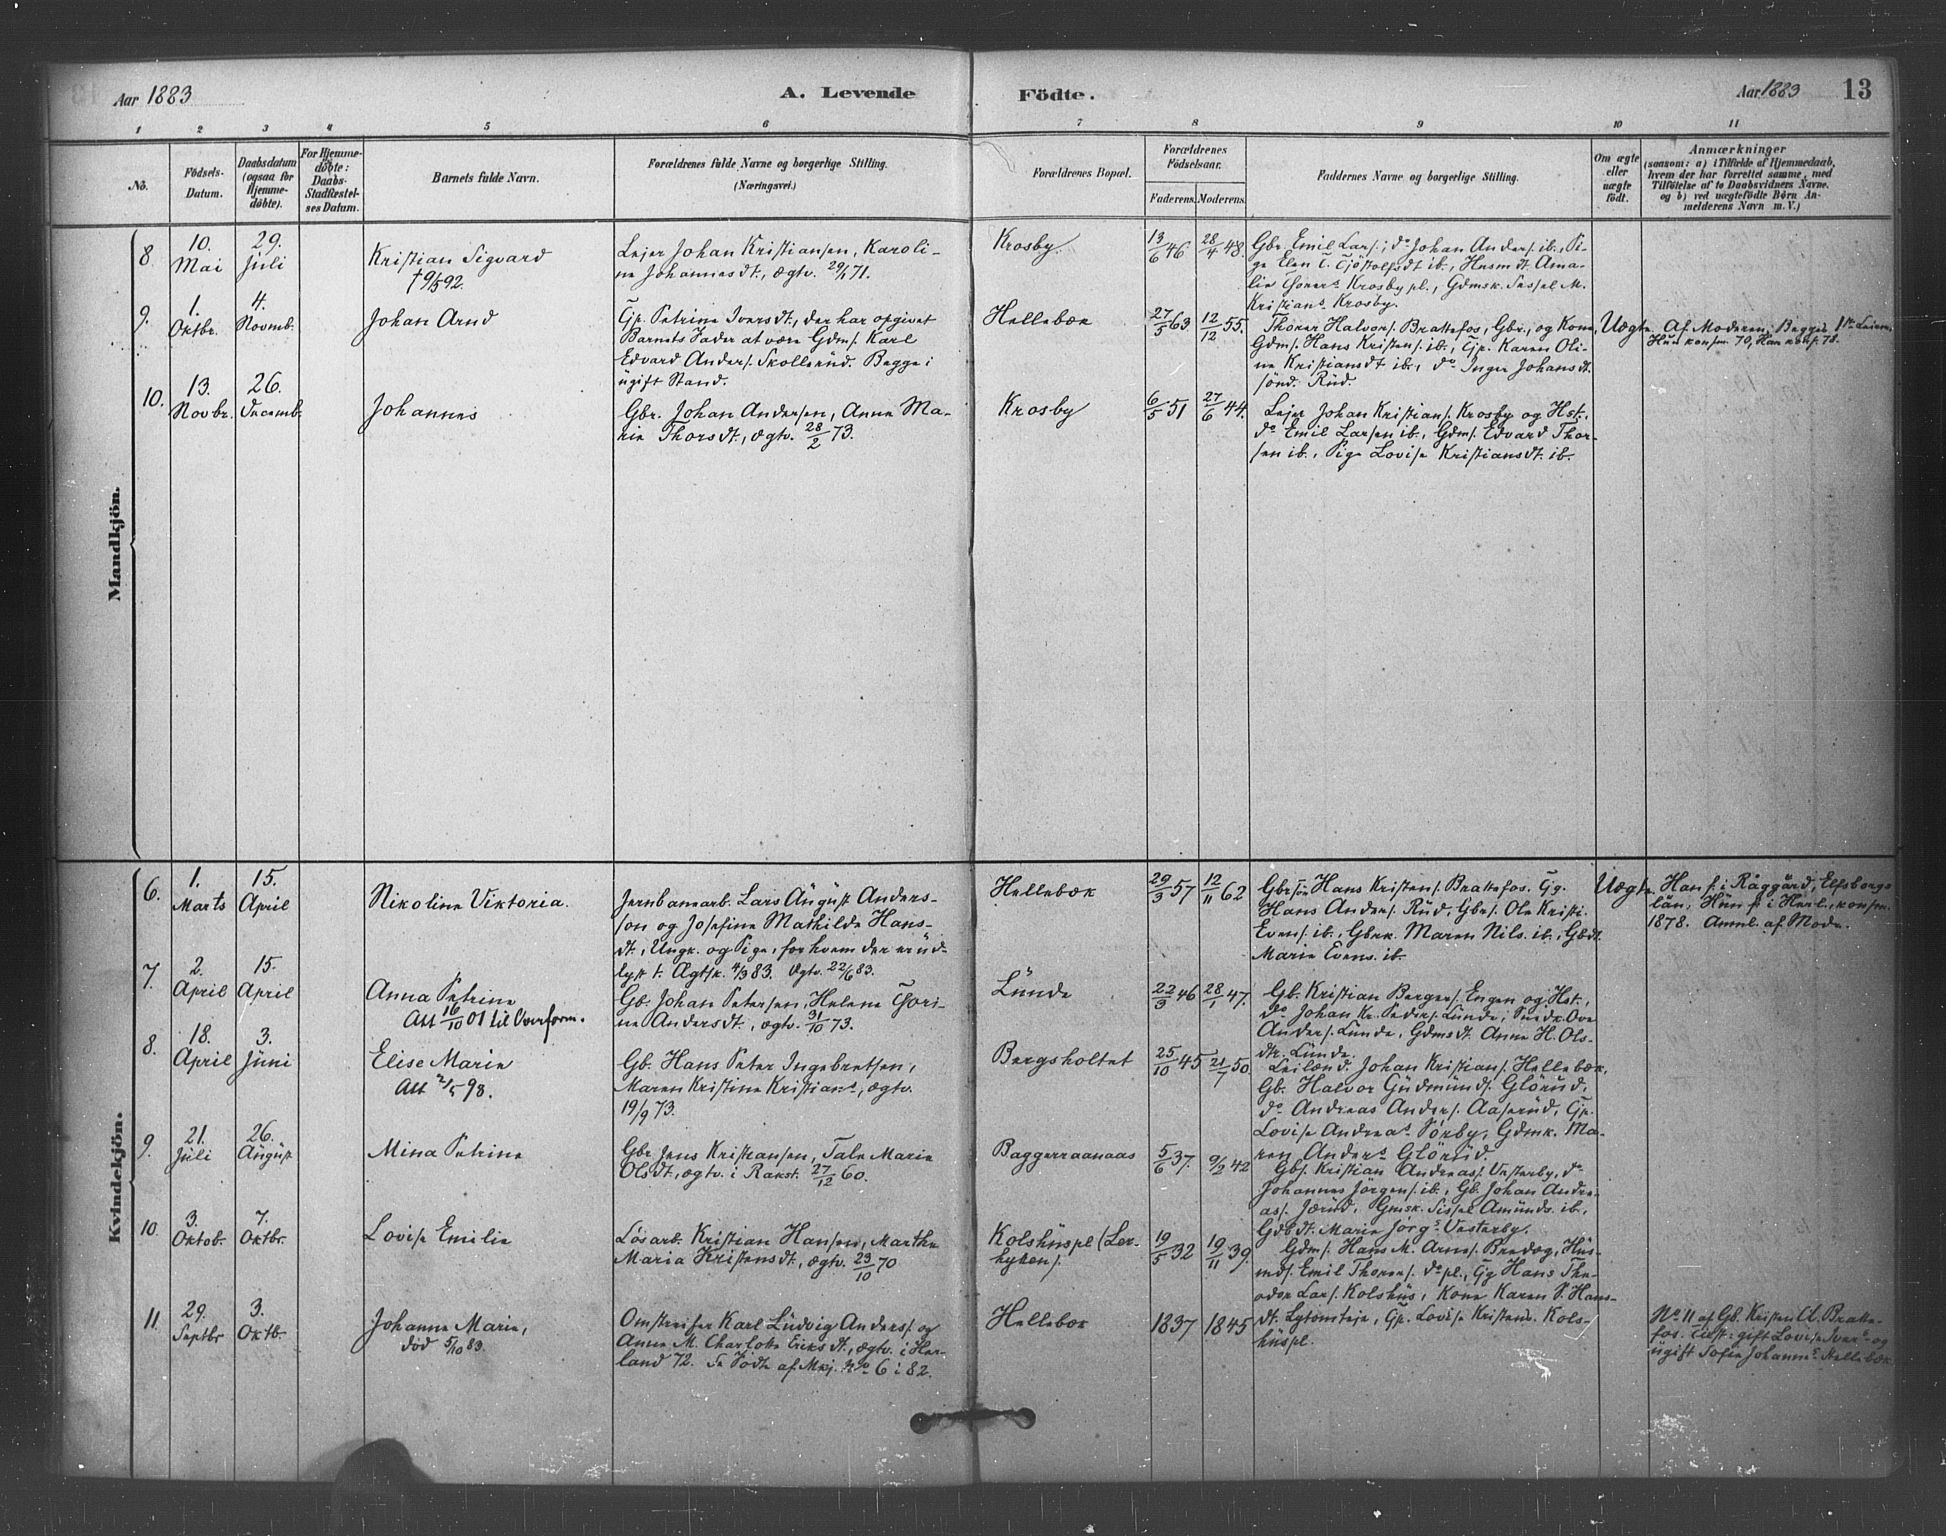 Aar 1883
A. Levende
Födte.
Aar 1883
13
1 2 3 4 5 6 7 8 9 10 11
No.
Födsels-
Datum.
Daabsdatum
(ogsaa for
Hjemme-
döbte).
For Hjemme-
döbte:
Daabs-
Stadfæstel-
ses Datum.
Barnets fulde Navn.
Forældrenes fulde Navne og borgerlige Stilling.
(Næringsvei.)
Forældrenes Bopæl.
Forældrenes
Födselsaar.
Faderens.
Moderens.
Faddernes Navne og borgerlige Stilling.
Om ægte
eller
uægte
födt.
Anmærkninger
(saasom: a) i Tilfælde af Hjemmedaab,
hvem der har forrettet samme, med
Tilföielse af to Daabsvidners Navne.
og b) ved uægtefödte Börn An-
melderens Navn m. V.)
Mandkjön.
8.
10.
Mai
29.
Juli
Kristian Sigvard
† 9/5 92.
Lejer Johan Kristiansen, Karoli-
ne Johannesdt, ægtv. 29/1 71.
Krosby.
13/6 46
28/4 48.
Gbr. Emil Lars.; do Johan Anders. ib., Pi-
ge Elen C. Tjöstolfsdt ib., Husmdt Ama-
lie Thorers Krosbypl., Gdmsk. Sissel M.
Kristians Krosby.
9.
1.
Oktbr.
4.
Novmb.
Johan Arnd
Gp. Petrine Iversdt, der har opgivet
Barnets Fader at være Gdms. Karl
Edvard Anders. Skollerüd. Begge i
ügift Stand.
Hellebæk
27/5 63
12/12 55.
Thorer Halvors. Brattefos, Gbr., og Kone,
Gdms. Hans Kristens. ib., Gp. Karen Oli-
ne Kristiansdt ib., do Inger Johansdt
sönd. Rüd.
Uægte
Af Moderen, Begges 1ste Leierm.
Hün konfm. 70, Han konf. 78.
10.
13.
Novbr.
26.
Decemb.
Johannes
Gbr. Johan Andersen, Anne Ma-
rie Thorsdt., ægtv. 28/2 73.
Krosby
6/5 51
27/6 44.
Lejer Johan Kristians. Krosby og Hst.,
do Emil Larsen ib., Gdms. Edvard Thor-
sen ib., Pige Lovise Kristiansdt. ib.
Kvindekjön.
6.
1.
Marts
15.
April
Nikoline Viktoria.
Jernbanearb. Lars Aügust Anders-
son og Josefine Mathilde Hans-
dt., Ungk. og Pige, for hvem der er üd-
lyst t. Ægtsk. 4/3 83. Ægtv. 22/6 83.
Hellebæk
29/3 57
12/11 62
Gbrsön Hans Kristens. Brattefos. Gg.
Hans Anders. Rüd, Gbrs. Ole Kristi.
Evens. ib., Gbrk. Maren Nils. ib., Gbdt.
Marie Evens. ib.
Uægte
Han f. i Råggård, Elfsborgs
län, Hün f. i Herl., konfm.
1878. Anml. af Mode.
7.
2.
April
15.
April
Anna Petrine
Att 16/10 01 til Overform.
Gb. Johan Petersen, Helene Thori-
ne Andersdt, ægtv. 31/10 73.
Lünde
22/3 46
28/1 47.
Gb. Kristian Berger s. Engen og Hst.,
do Johan Kr. Peders. Lünde, Ove
Anders. Lünde, Gdmsdt. Anne H. Ols-
dtr. Lünde.
8.
18.
April
3.
Jüni
Elise Marie
Att 2/5 98.
Gb. Hans Peter Ingebretsen,
Maren Kristine Kristians, ægtv.
19/9 73.
Bergsholtet
25/10 45
21/7 50
Leilænd. Johan Kristians. Hellebæk,
Gb. Halvor Güdmünds. Glörüd,
do Andreas Anders. Aaserüd, Gp.
Lovise Andreas Sörby, Gdmk. Ma-
ren Anders Glörüd.
9.
21.
Jüli
26.
Aügüst
Mina Petrine
Gbr. Jens Kristiansen, Tale Marie
Olsdt, ægtv. i Rakst. 27/12 60.
Baggerraanaas
5/6 37.
9/2 42
Gbs. Kristian Andreas. Vesterby, do
Johannes Jörgens. ib., Gb. Johan Andre-
as. Jærüd, Gmsk. Sissel Amünds. ib.,
Gdbdt. Marie Jörgs Vesterby.
10
3.
Oktob.
7.
Oktbr.
Lovise Emilie
Lösarb. Kristian Hansen, Marthe
Maria Kristensdt, ægtv. 23/10 70
Kolshüspl (Ler-
hytten).
19/5 32
19/11 39.
Gdms. Hans M. Arnes. Bredæg, Hüs-
mds. Emil Thorers. do pl., Gg Hans The-
odor Lars. Kolshüs, Kone Karen S. Hans-
dt. Lytomteje, Gp. Lovise Kristens. Kols-
hüspl.
11.
29.
Septbr
3.
Oktb.
Johanne Marie,
död 5/10 83.
Omstreifer Karl Lüdvig Anders. og
Anne M. Charlotte Eriksdt., ægtv. i Her-
land 72. Se Födte af Mkj. No 6 i 82.
Hellebæk
1837
1845
No 11 af Gb. Kristen A. Bratte-
fos. Tilst: gift Lovise Ivers og
ügift Sofie Johannes Hellebæk